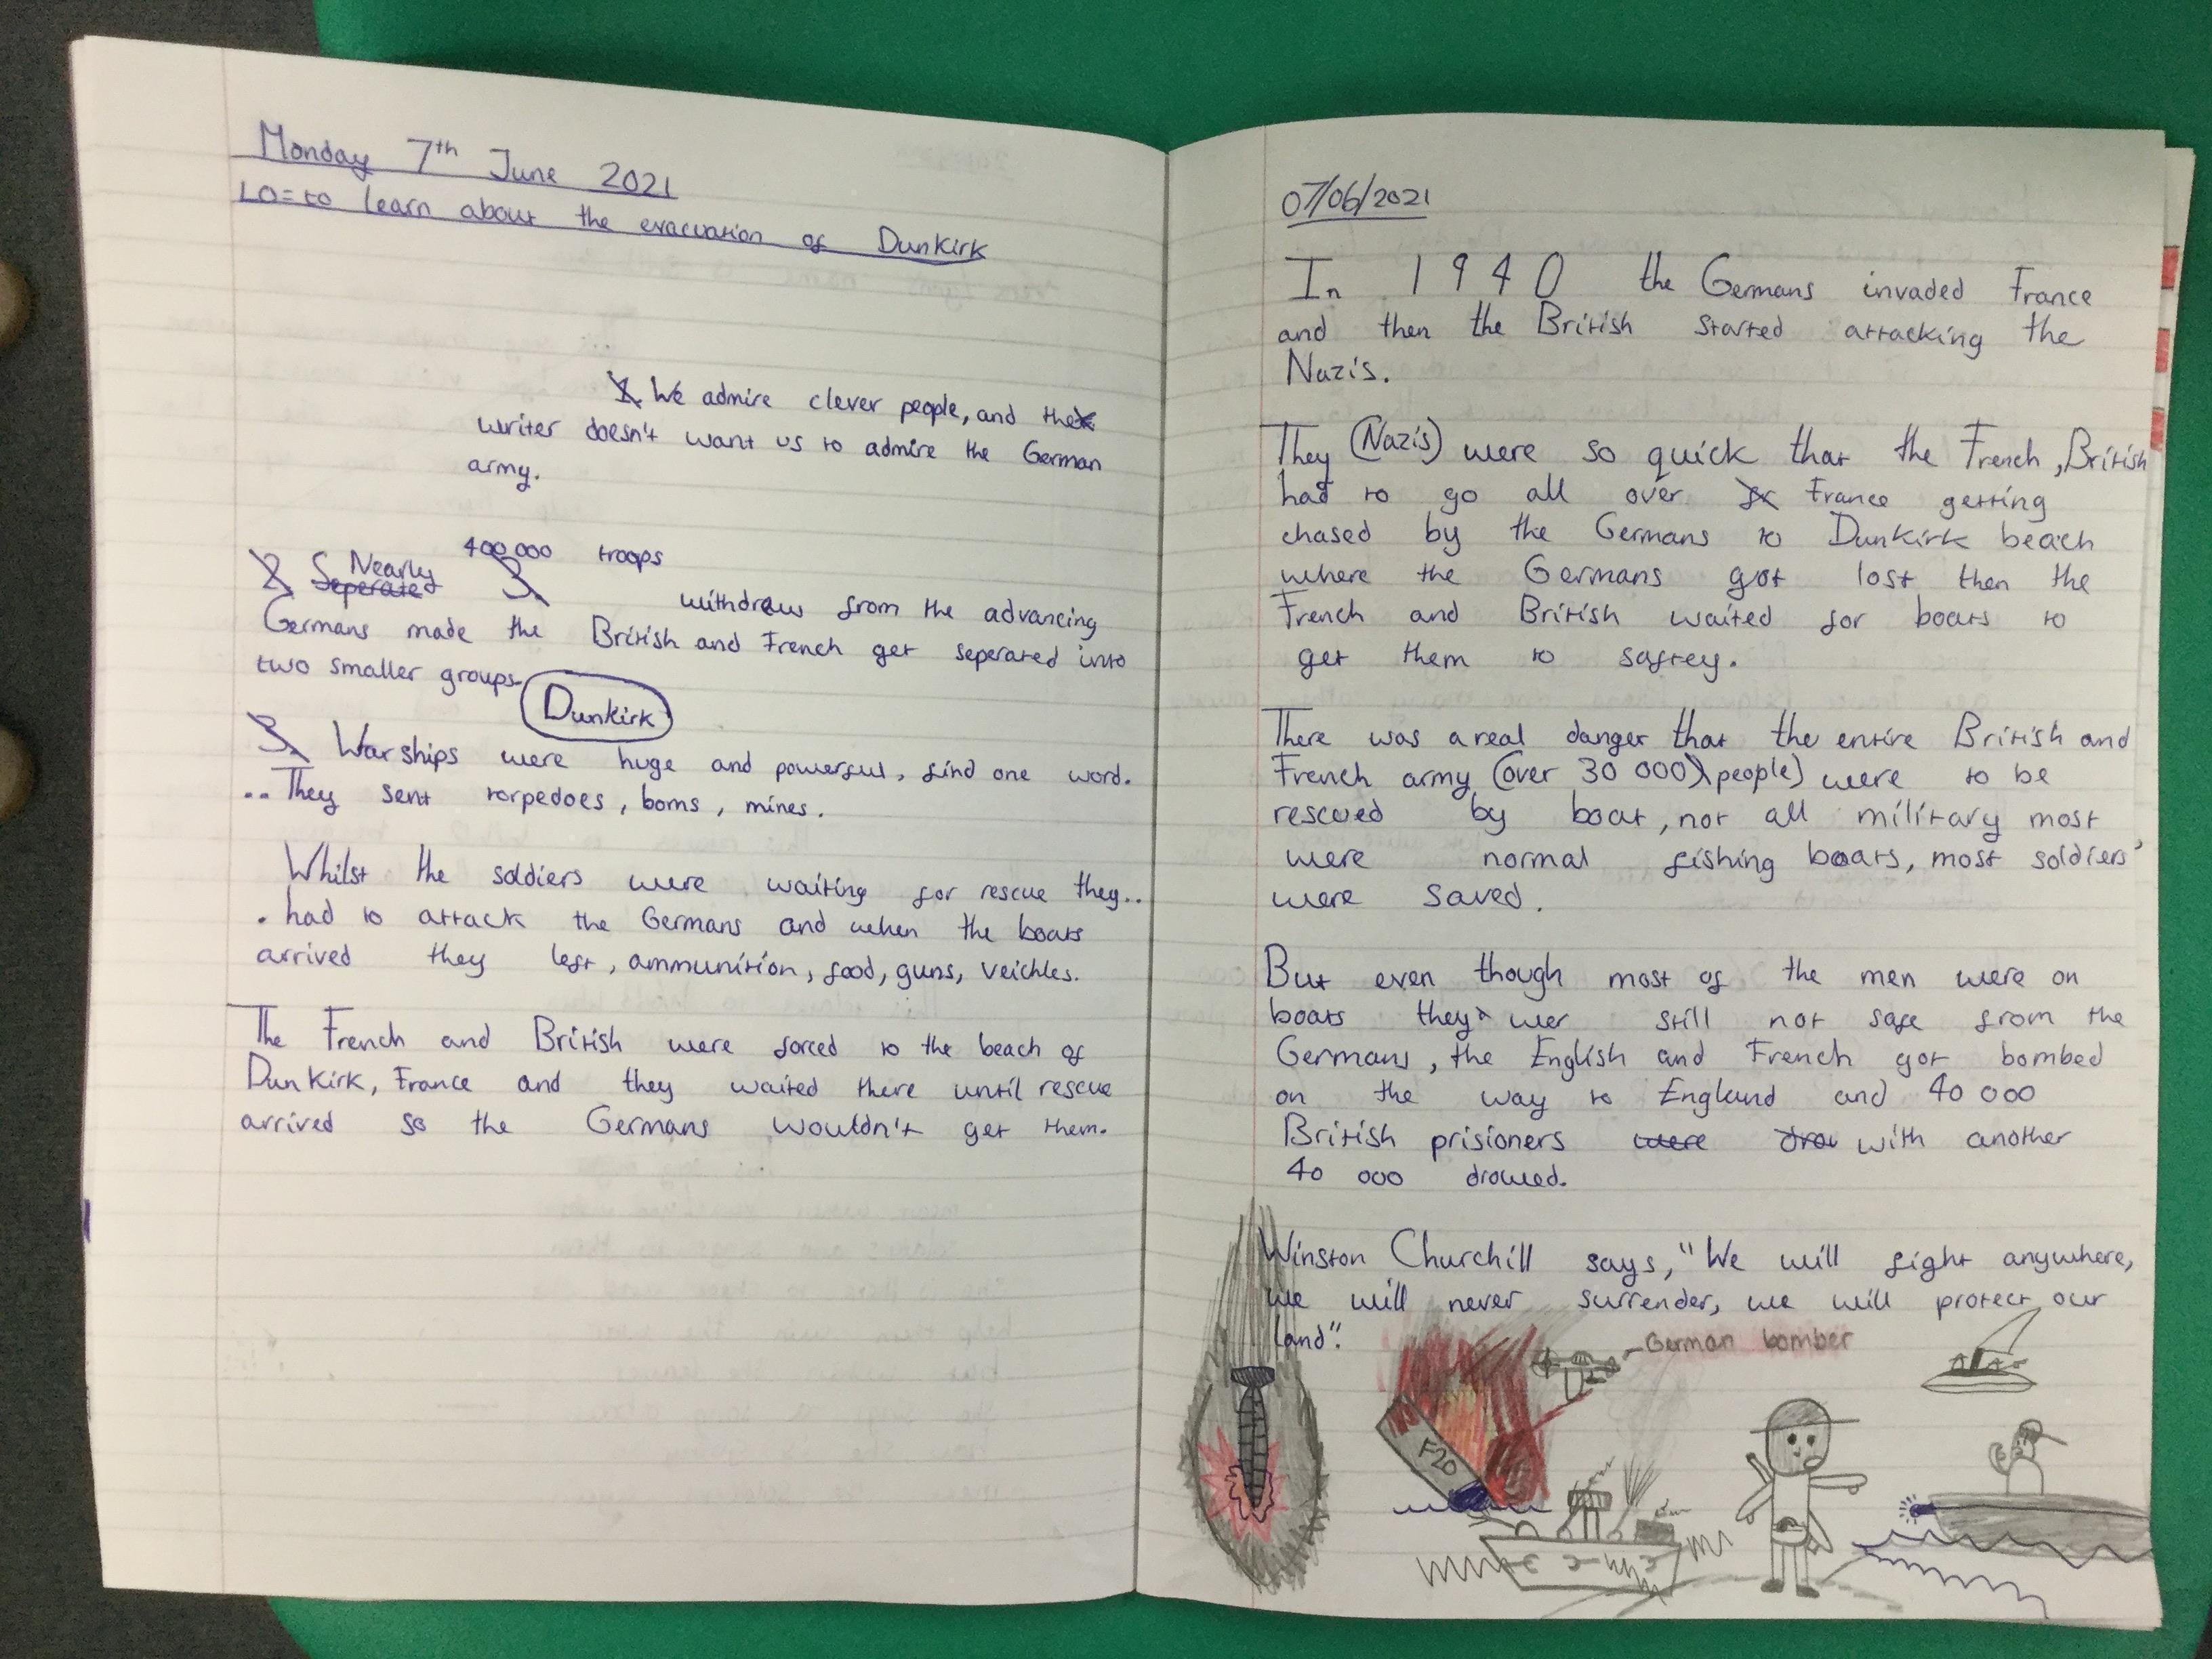 Monday 7th June 2021
LO= to learn about the evacuation of Dunkirk
1. We admire clever people, and the
writer doesn't want us to admire the German
army.
400,000 troops
2. Seperated Nearly 3.
withdraw from the advancing
Germans made the British and French get seperated into
two smaller groups.
Dunkirk
3. Warships were huge and powerful, find one word.
.. They sent torpedoes, boms, mines.
Whilst the soldiers were waiting for rescue they..
. had to attack the Germans and when the boats
arrived they left, ammunition, food, guns, veichles.
The French and British were forced to the beach of
Dunkirk, France and they waited there until rescue
arrived so the Germans wouldn't get them.
07/06/2021
In 1940 the Germans invaded France
and then the British started attacking the
Nazis.
They (Nazis) were so quick that the French, British
had to go all over France getting
chased by the Germans to Dunkirk beach
where the Germans got lost then the
French and British waited for boats to
get them to saftey.
There was a real danger that the entire British and
French army (over 30 000) people) were to be
rescued by boat, not all military most
were normal fishing boats, most soldiers'
were saved.
But even though most of the men were on
boats they wer still not safe from the
Germans, the English and French got bombed
on the way to England and 40 000
British prisioners were drow with another
40 000 drowed.
Winston Churchill says, "We will fight anywhere,
we will never surrender, we will protect our
land".
German bomber
F20